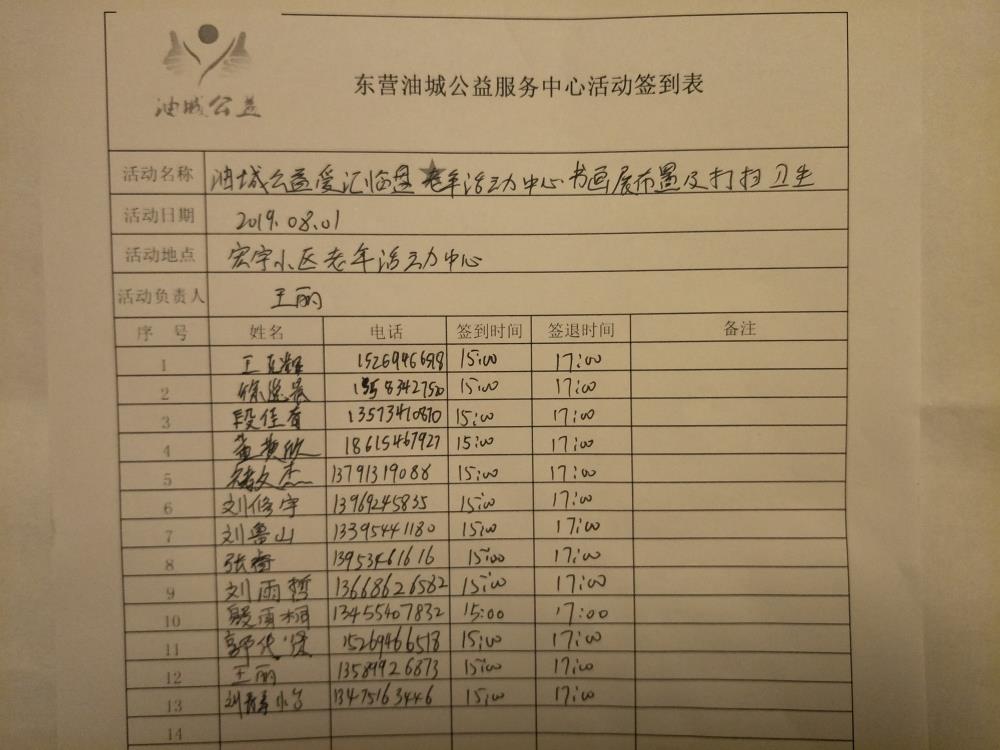 油城公益
东营油城公益服务中心活动签到表
活动名称 油城公益爱汇临盘★老年活动中心书画展布置及打扫卫生
活动日期 2019.08.01
活动地点 宏宇小区老年活动中心
活动负责人 王丽
序号 姓名 电话 签到时间 签退时间 备注
1 15:00 17:00
2 15:00 17:00
3 段佳育 13573410870 15:00 17:00
4 18615467927 15:00 17:00
5 文杰 13791319088 15:00 17:00
6 刘修宇 13969245835 15:00 17:00
7 刘鲁山 13395441180 15:00 17:00
8 张 13953461616 15:00 17:00
9 刘雨哲 13668626582 15:00 17:00
10 殷雨桐 13455407832 15:00 17:00
11 郭代 15269466518 15:00 17:00
12 王丽 13589926873 15:00 17:00
13 刘 13475163446 15:00 17:00
14